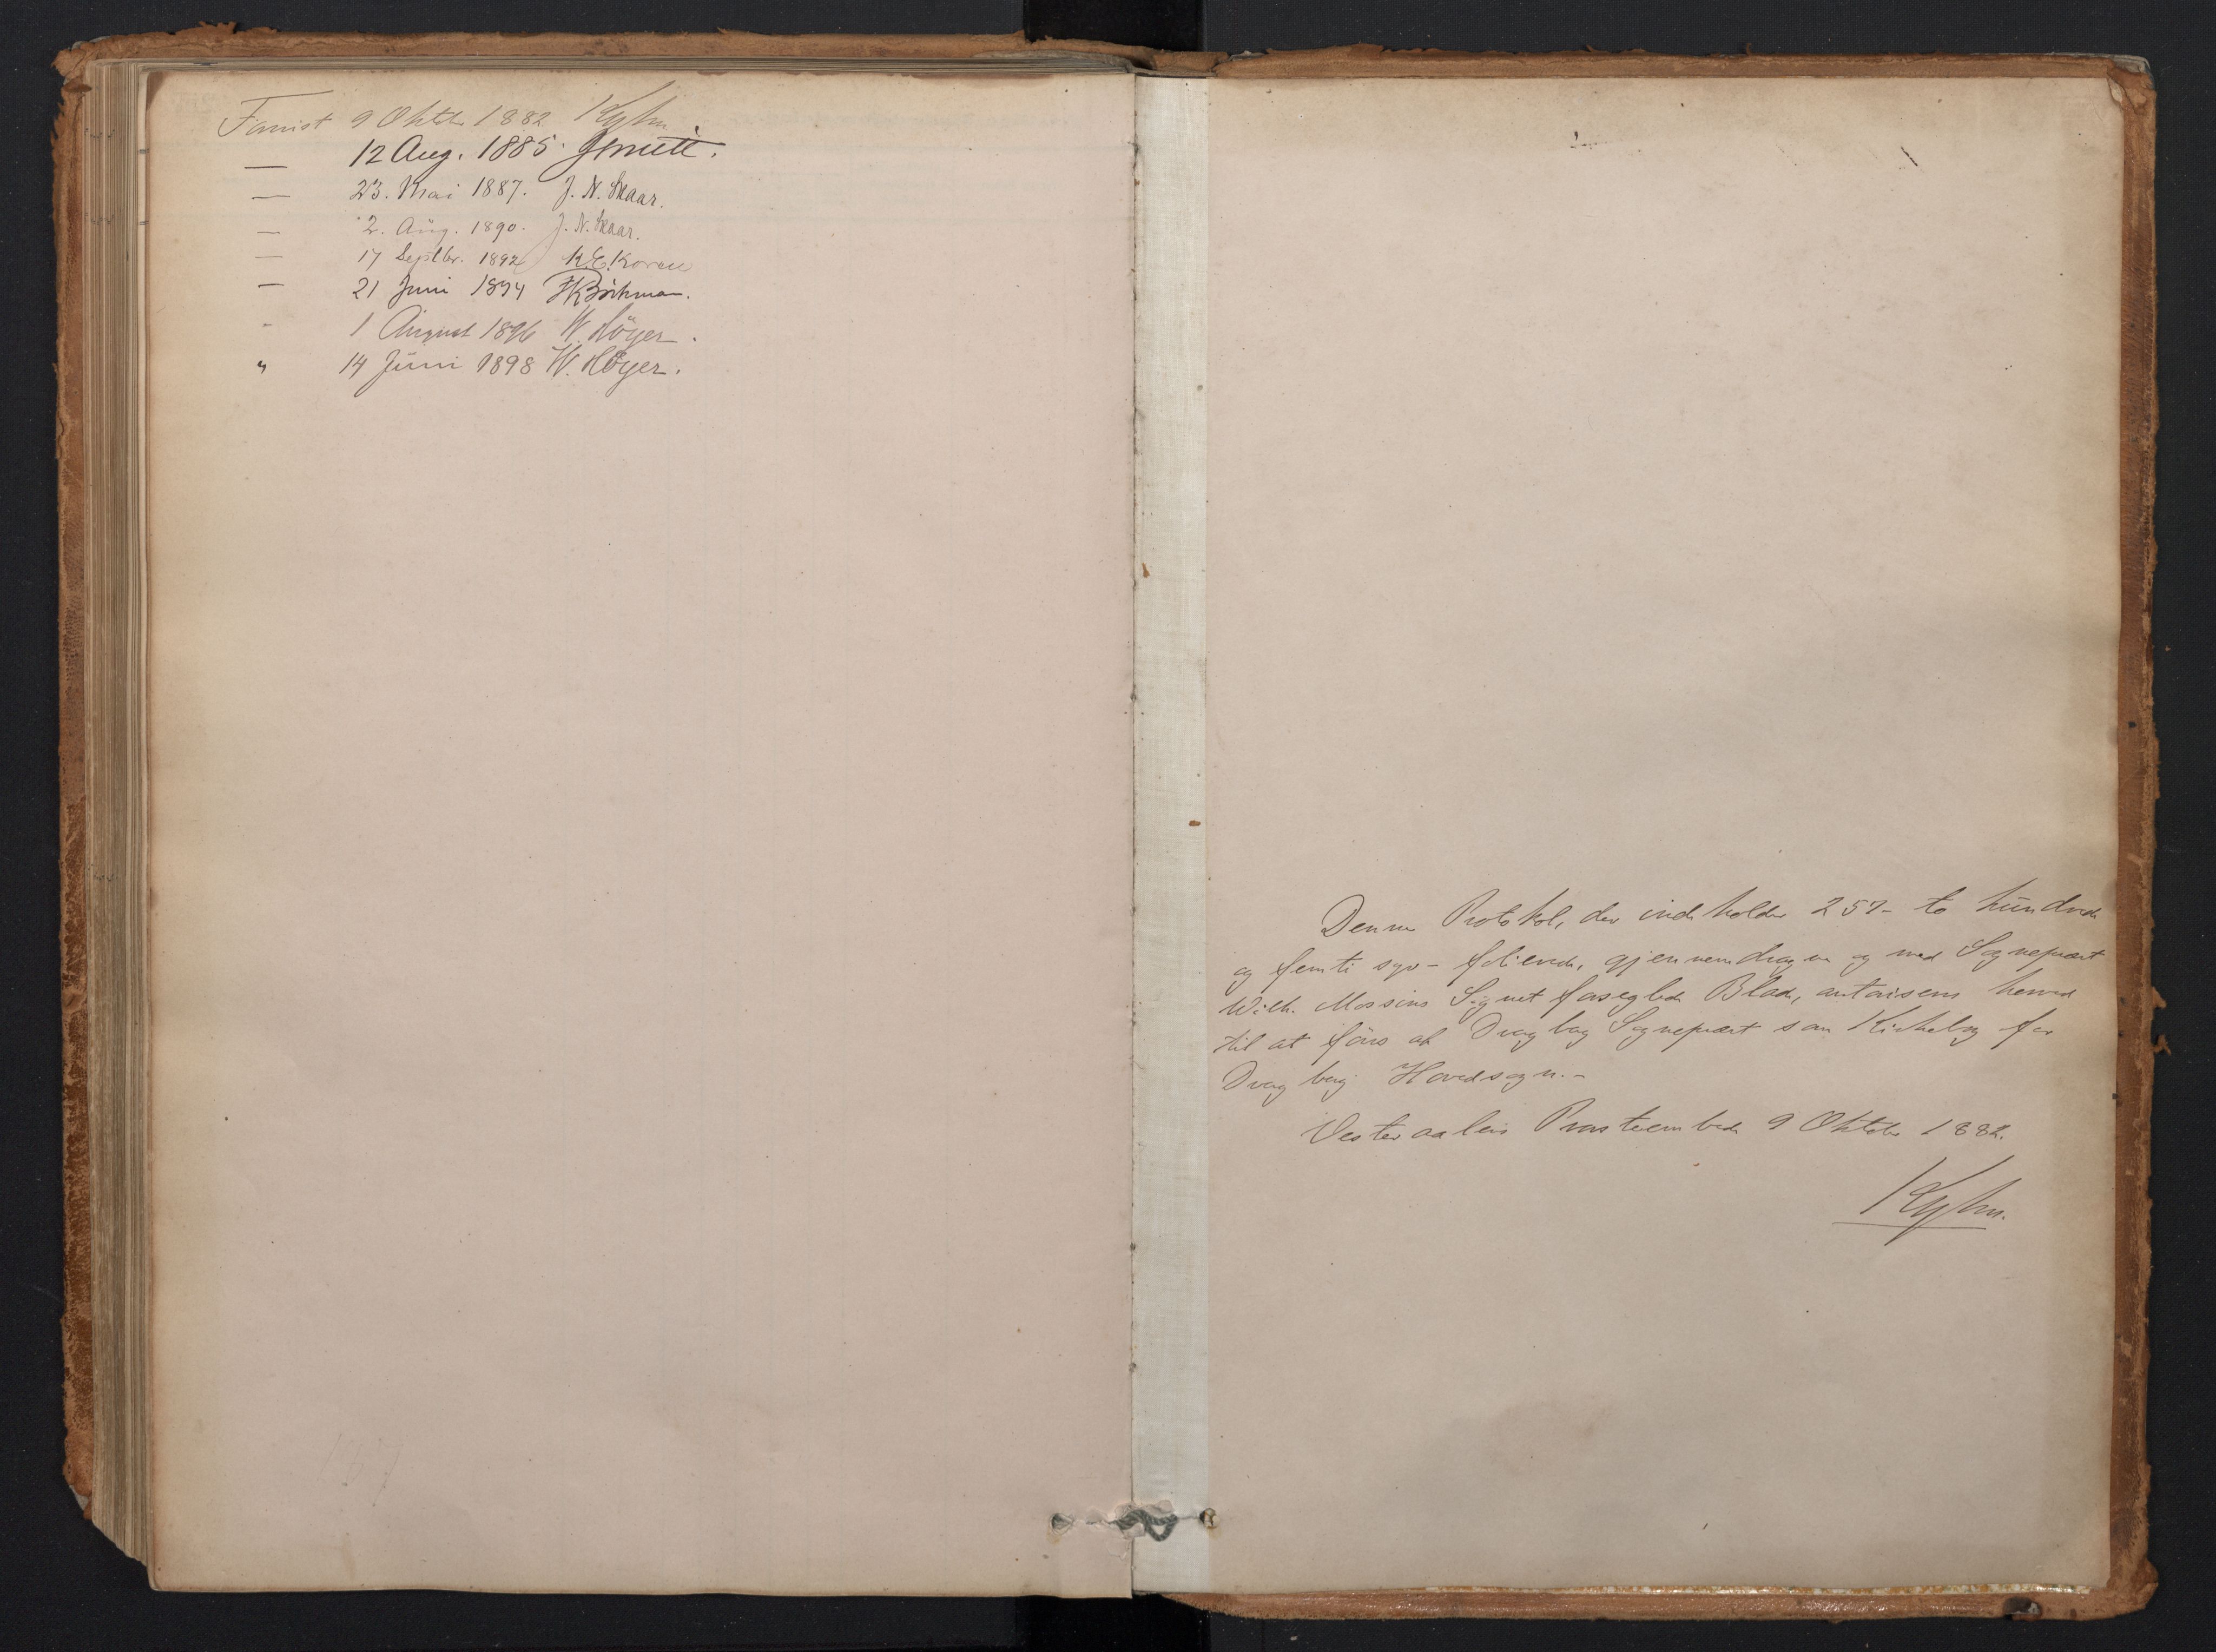 9 Oktober 1882
— 12 Aug. 1885.
— 23. Mai 1887. J. N. Skaar.
— 2. Aug. 1890. J. N. Skaar.
— 17 Septbr. 1892 K. E. Koren
— 21 Juni 1894 Böckman.
- 1 August 1896 W. Höyer.
" 14 Juni 1898 W. Höyer.
Denne Protokol, der indeholder 257- to hundrede
og femti syv- folierede, gjennemdragne og med Sognepræst
Wilh. Signet forseglede Blade, autorisers herved
til at föres af Dragberg Sognepræst som Kirkebog for
Dragberg Hovedsogn.-
Vesteraalens Provsteembede 9 Oktober 1882.